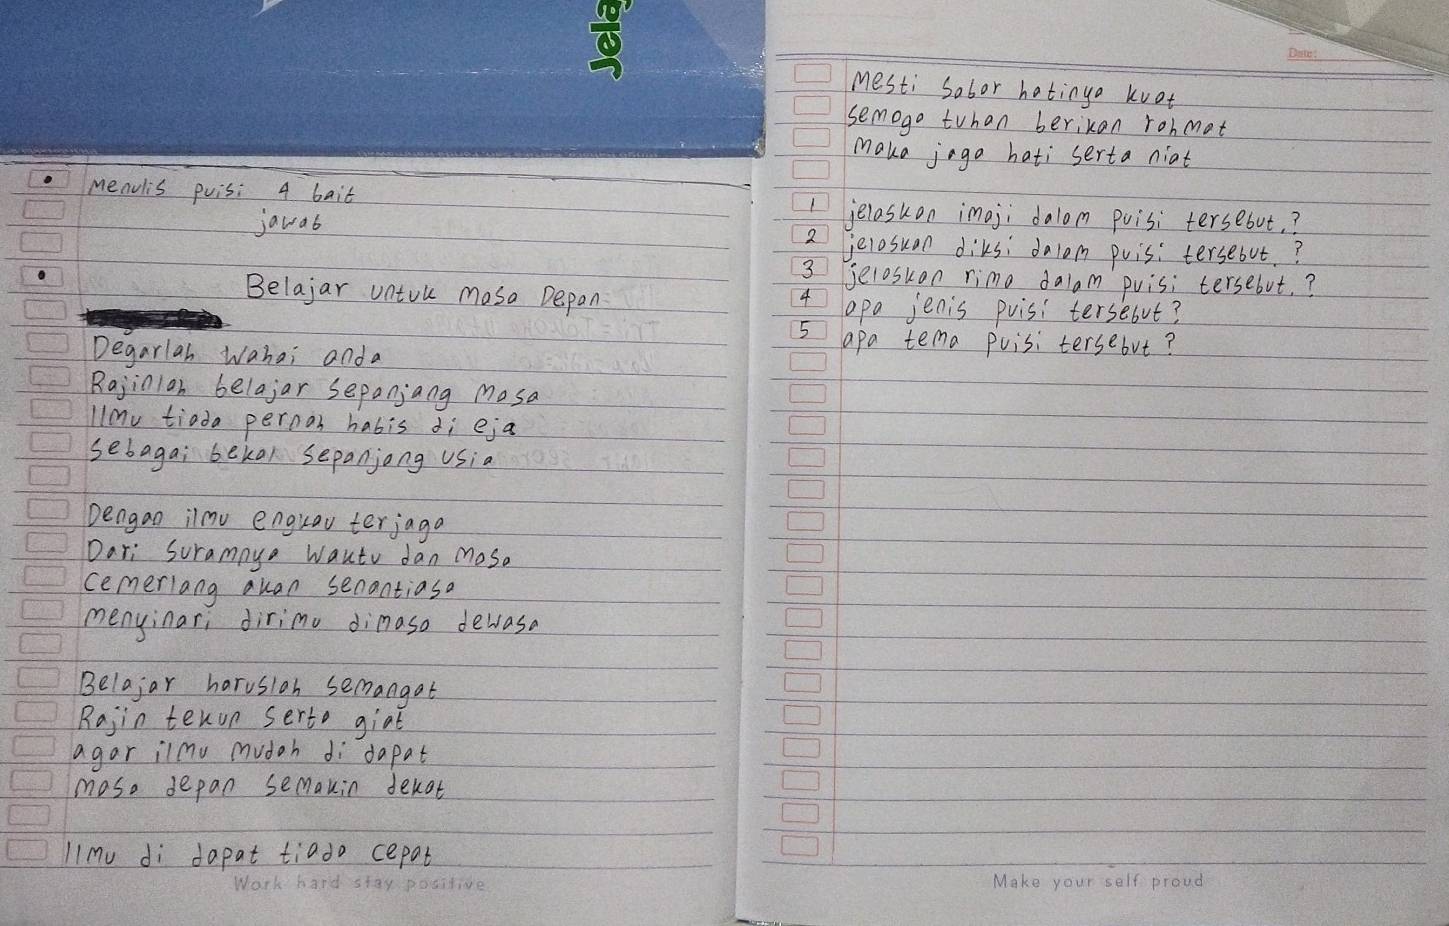 Jela
Menulis puisi 4 bait
jawab
Belajar untuk masa Depan
Degarlah wahai anda
Rajinlah belajar sepanjang masa
Ilmu tiada pernah habis di eja
sebagai bekal sepanjang usia
Dengan ilmu engkau terjaga
Dari suramnya waktu dan masa
cemerlang akan senantiasa
menyinari dirimu dimasa dewasa
Belajar haruslah semangat
Rajin tekun serta giat
agar ilmu mudah di dapat
masa depan semakin dekat
Ilmu di dapat tiada cepat
Work hard stay positive
Date:
Mesti sabar hatinya kuat
semoga tuhan berikan rahmat
maka jaga hati serta niat
1 jelaskan imaji dalam puisi tersebut.?
2 jelaskan diksi dalam puisi tersebut.?
3 jelaskan rima dalam puisi tersebut.?
4 apa jenis puisi tersebut?
5 apa tema puisi tersebut?
Make your self proud